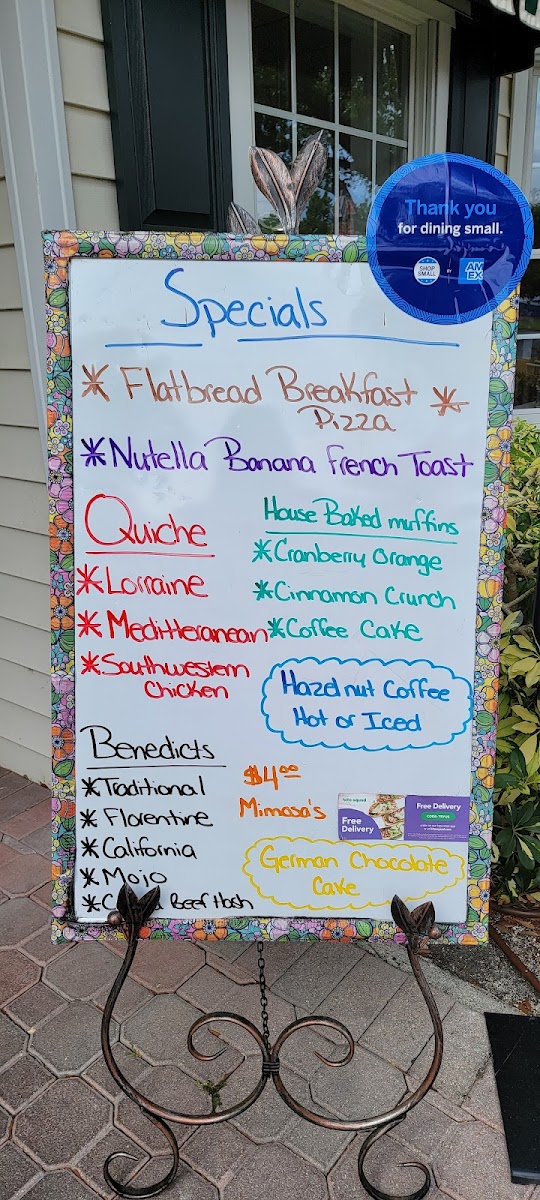 Thank you
for dining small.
SHOP
SMALL
BY
AM
EX
Specials
* Flatbread Breakfast *
Pizza
* Nutella Banana French Toast
Quiche
* Lorraine
* Mediterranean
* Southwestern
Chicken
House Baked muffins
* Cranberry Orange
* Cinnamon Crunch
* Coffee Cake
Hazelnut Coffee
Hot or Iced
Benedicts
* Traditional
* Florentine
* California
* Mojo
* Beef Hash
$4.00
Mimosa's
Free
Delivery
Free Delivery
German Chocolate
Cake